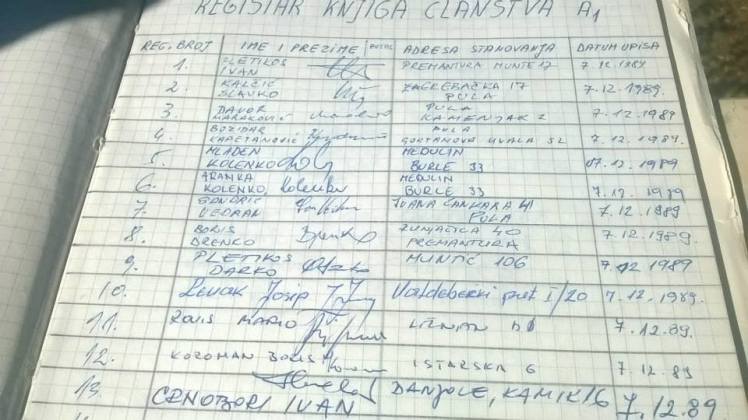 REGISTAR KNJIGA ČLANSTVA A1
REG. BROJ IME I PREZIME POTPIS ADRESA STANOVANJA DATUM UPISA
1. PLETIKOS IVAN PREMANTURA MUNTE 17 7.12.1989
2. KALČIĆ SLAVKO ZAGREBAČKA 17 PULA 7.12.1989.
3. DAVOR MARAKOVIĆ PULA KAMENJAK 2 7.12.1989
4. BOŽIDAR KAPETANOVIĆ PULA GORTANOVA UVALA 7.12.1989.
5. MLADEN KOLENKO MEDULIN BURLE 33 07.12.1989
6. ARANKA KOLENKO, Kolenko MEDULIN BURLE 33 7.12.1989
7. VEDRAN IVANA CANKARA PULA 7.12.1989
8. BORIS DRENKO Drenko 40 PREMANTURA 7.12.1989.
9. PLETIKOS DARKO MUNTIĆ 106 7.12 1989
10. Josip Valdebecki put I/20 7.12.1989.
11. MARIO LIŽNJAN 7.12.89.
12. KOROMAN BORIS ISTARSKA 6 7.12.89
13. CRNOBORI IVAN BANJOLE, KAMIK 16 7.12.89.